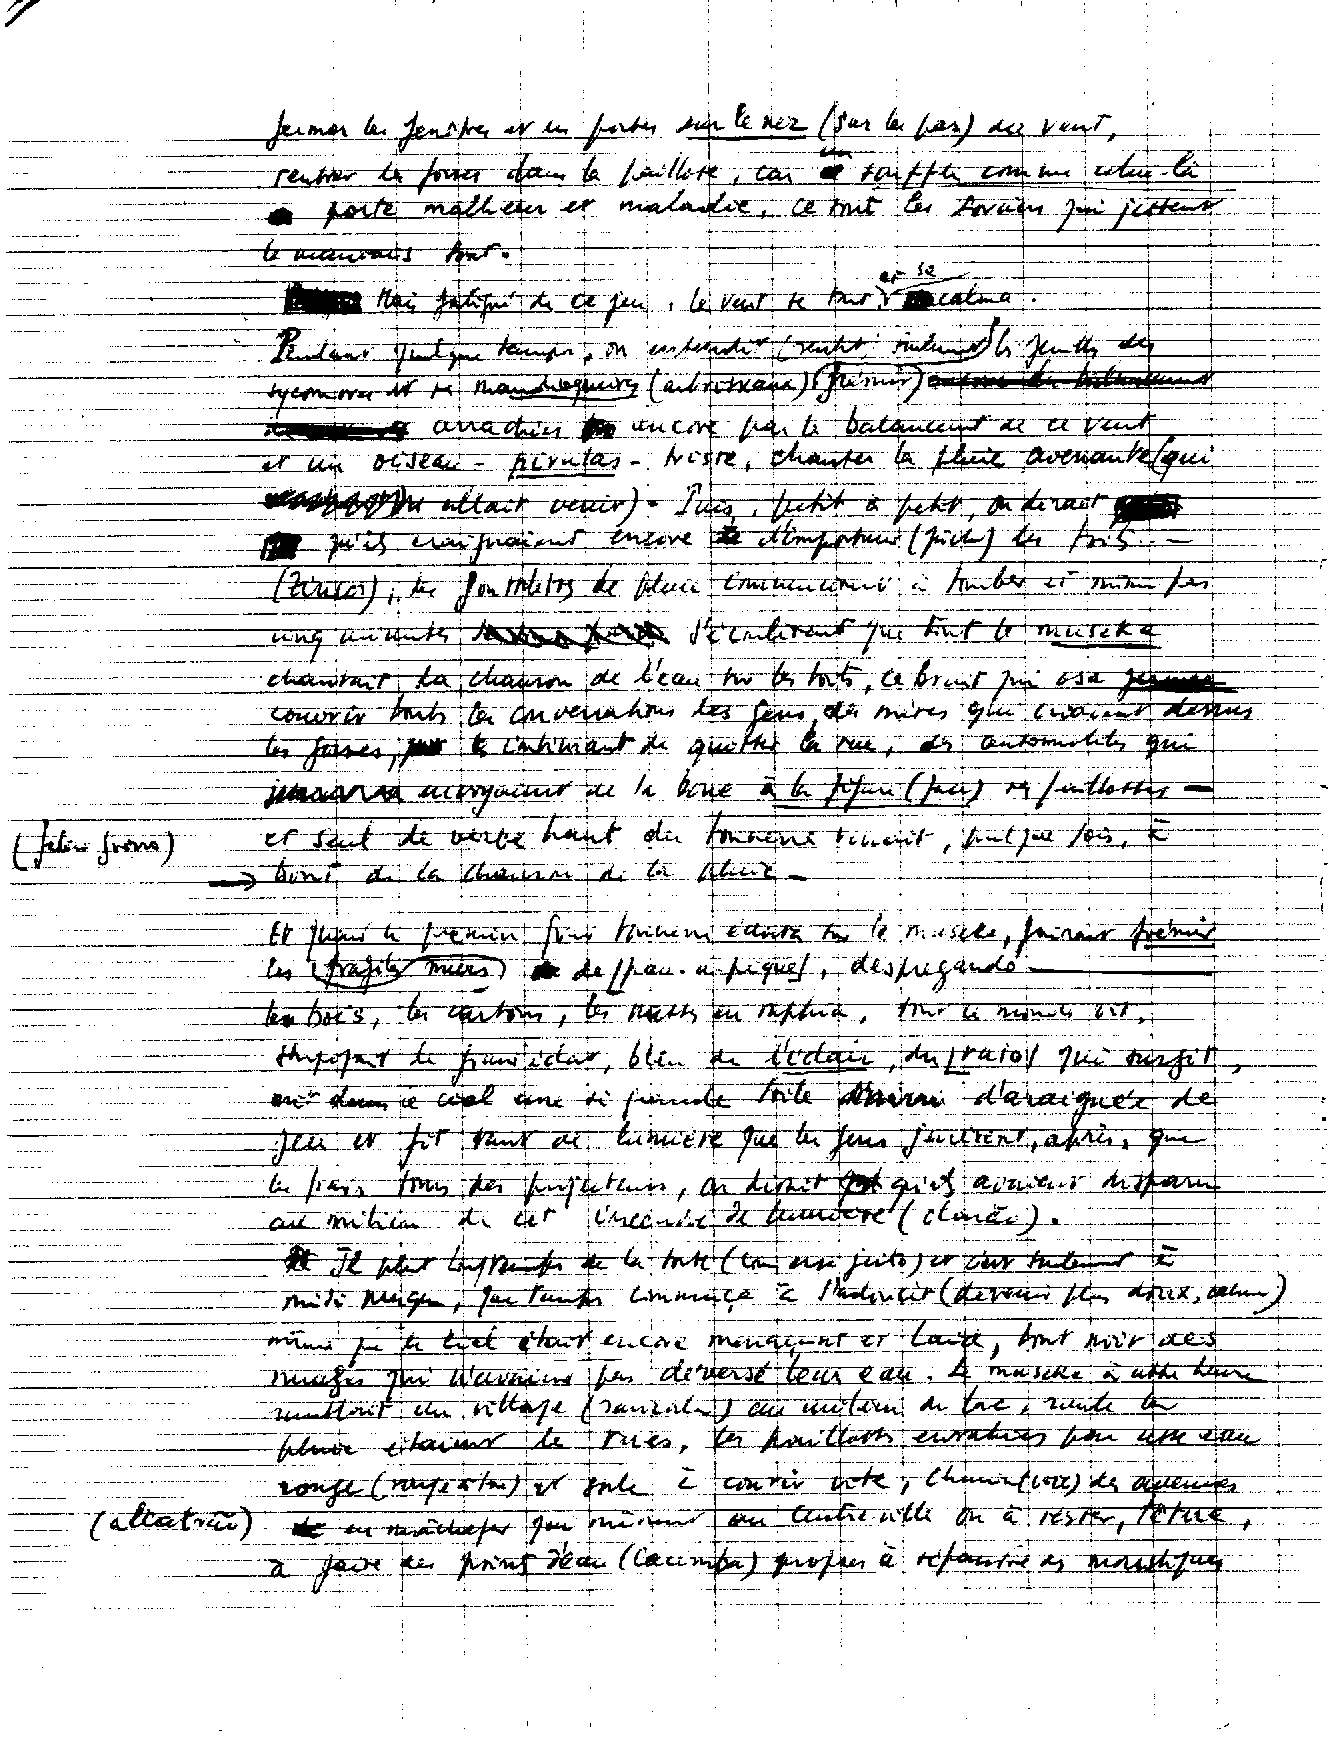 fermer les fenêtres et les portes sur le nez (sur les pas) du vent,
rentrer les gosses dans la paillote, car un souffle comme celui-là
porte malheur et maladie, ce sont les sorciers qui jettent
le mauvais sort.
Mais fatigué de ce jeu, le vent se tut et se calma.
Pendant quelque temps, on entendit (seulement) les feuilles des
sycomores et mandioqueiras (arbrisseaux) (frémir)
arrachées encore par le balancement de ce vent
et un oiseau - pírulas - triste, chanter la pluie avenante (qui
allait venir). Puis, petit à petit, on dirait
qu'ils craignaient encore d'importuner les toits -
(zincos), les gouttelettes de pluie commencèrent à tomber et même pas
cinq minutes s'écoulèrent que tout le museke
chantait la chanson de l'eau sur les toits, ce bruit qui osa
couvrir toutes les conversations des gens, des mères qui criaient dessus
les gosses, intimant de quitter la rue, des automobiles qui
envoyaient de la boue à la figure (face) des paillottes -
et seul le verbe haut du tonnerre venait, quelque fois, à
(falou grosso)
→ bout de la chanson de la pluie -
Et quand le premier gros tonnerre éclata sur le museke, faisant frémir
les (fragiles murs) de [pau-a-pique], despregando
les bois, les cartons, les nattes en raphia, tout le monde vit,
stupéfait le grand éclat, bleu de l'éclair, du [raio] qui surgit,
dans le ciel une si grande toile d'araignée de
feu et fit tant de lumière que les gens jurèrent, après, que
les projecteurs, on dirait qu'ils avaient disparu
au milieu de cet incendie de lumière (clarão).
Il plut longtemps de la sorte (com esse jeito) et c'est seulement à
midi commença à s'adoucir (devenir plus doux, calme)
même que le ciel était encore menaçant et laid, tout noir des
nuages qui n'avaient pas déversé leur eau. Le museke à cette heure
semblait un village (sanzala) au milieu du lac,
pluie étaient les rues, les paillottes envahies par cette eau
rouge et sale à courir vite, chemin (voie) des avenues
(alcatrão) en mâchefer qui mènent au centre ville ou à rester, têtue,
à faire des points d'eau (cacimba) propres à repaître des moustiques